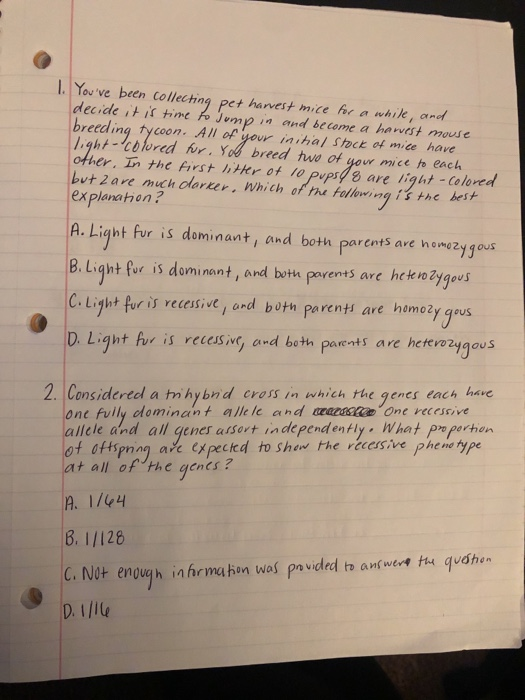 1. You've been collecting pet harvest mice for a while, and
decide it is time to jump in and become a harvest mouse
breeding tycoon. All of your initial stock of mice have
light-colored fur. You breed two of your mice to each
other. In the first litter of 10 pups, 8 are light-colored
but 2 are much darker. Which of the following is the best
explanation?
A. Light fur is dominant, and both parents are homozygous
B. Light fur is dominant, and both parents are heterozygous
C. Light fur is recessive, and both parents are homozygous
D. Light fur is recessive, and both parents are heterozygous
2. Considered a trihybrid cross in which the genes each have
one fully dominant allele and one recessive
allele and all genes assort independently. What proportion
of offspring are expected to show the recessive phenotype
at all of the genes?
A. 1/64
B. 1/128
C. Not enough information was provided to answere the question
D. 1/16